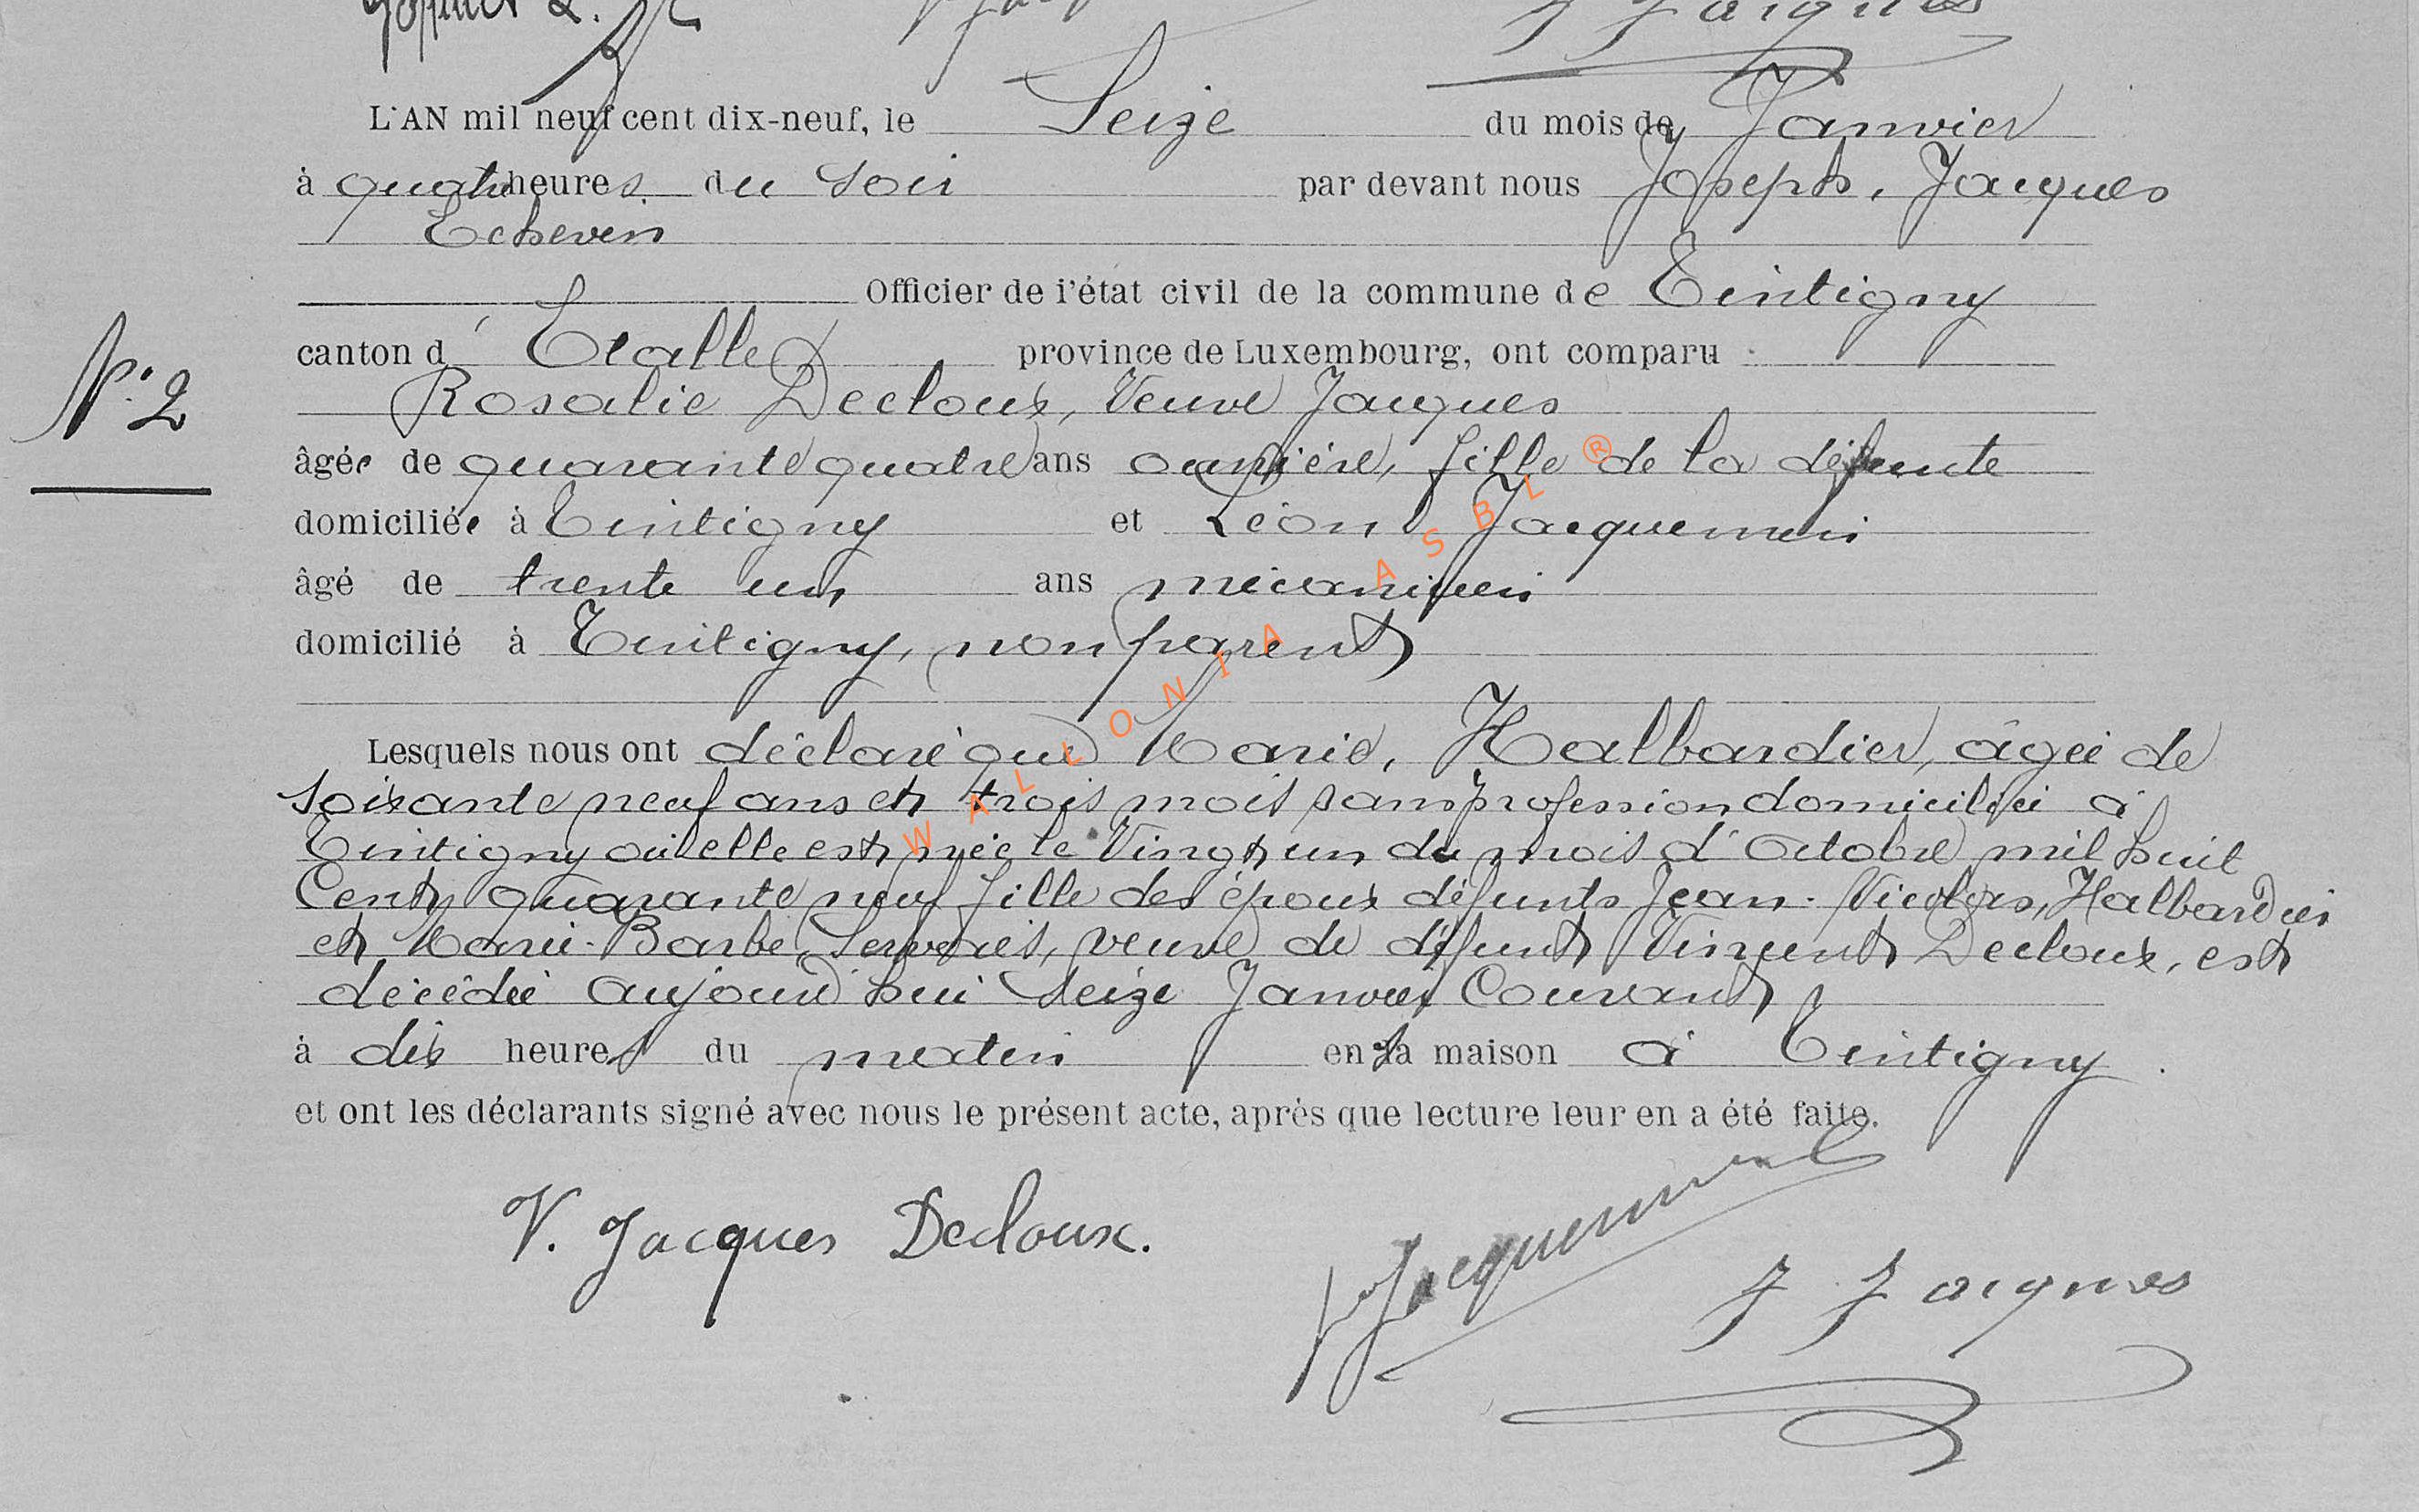 J Jacques
L'AN mil neuf cent dix-neuf, le Seize du mois de Janvier
à quatre heures du soir par devant nous Joseph, Jacques
Echevin
Officier de l'état civil de la commune de Tintigny
canton d'Etalle province de Luxembourg, ont comparu
Rosalie Decloux, Veuve Jacques
N° 2
âgée de quarante quatre ans ouvrière, fille de la défunte
domiciliée à Tintigny et Léon Jacquemin
âgé de trente un ans mécanicien
domicilié à Tintigny, non parent
Lesquels nous ont déclaré que Marie, Halbardier, âgée de
soixante neuf ans et trois mois sans profession domiciliée à
Tintigny où elle est née le Vingt un du mois d'Octobre mil huit
Cent quarante neuf fille des époux défunts Jean-Nicolas, Halbardier
et Marie-Barbe, Servais, veuve de défunt Vincent Decloux, est
décédée aujourd'hui seize Janvier Courant
à dix heures du matin en sa maison à Tintigny
et ont les déclarants signé avec nous le présent acte, après que lecture leur en a été faite.
V. Jacques Decloux.
Jacquemin
J Jacques
WALLONIA ASBL ®